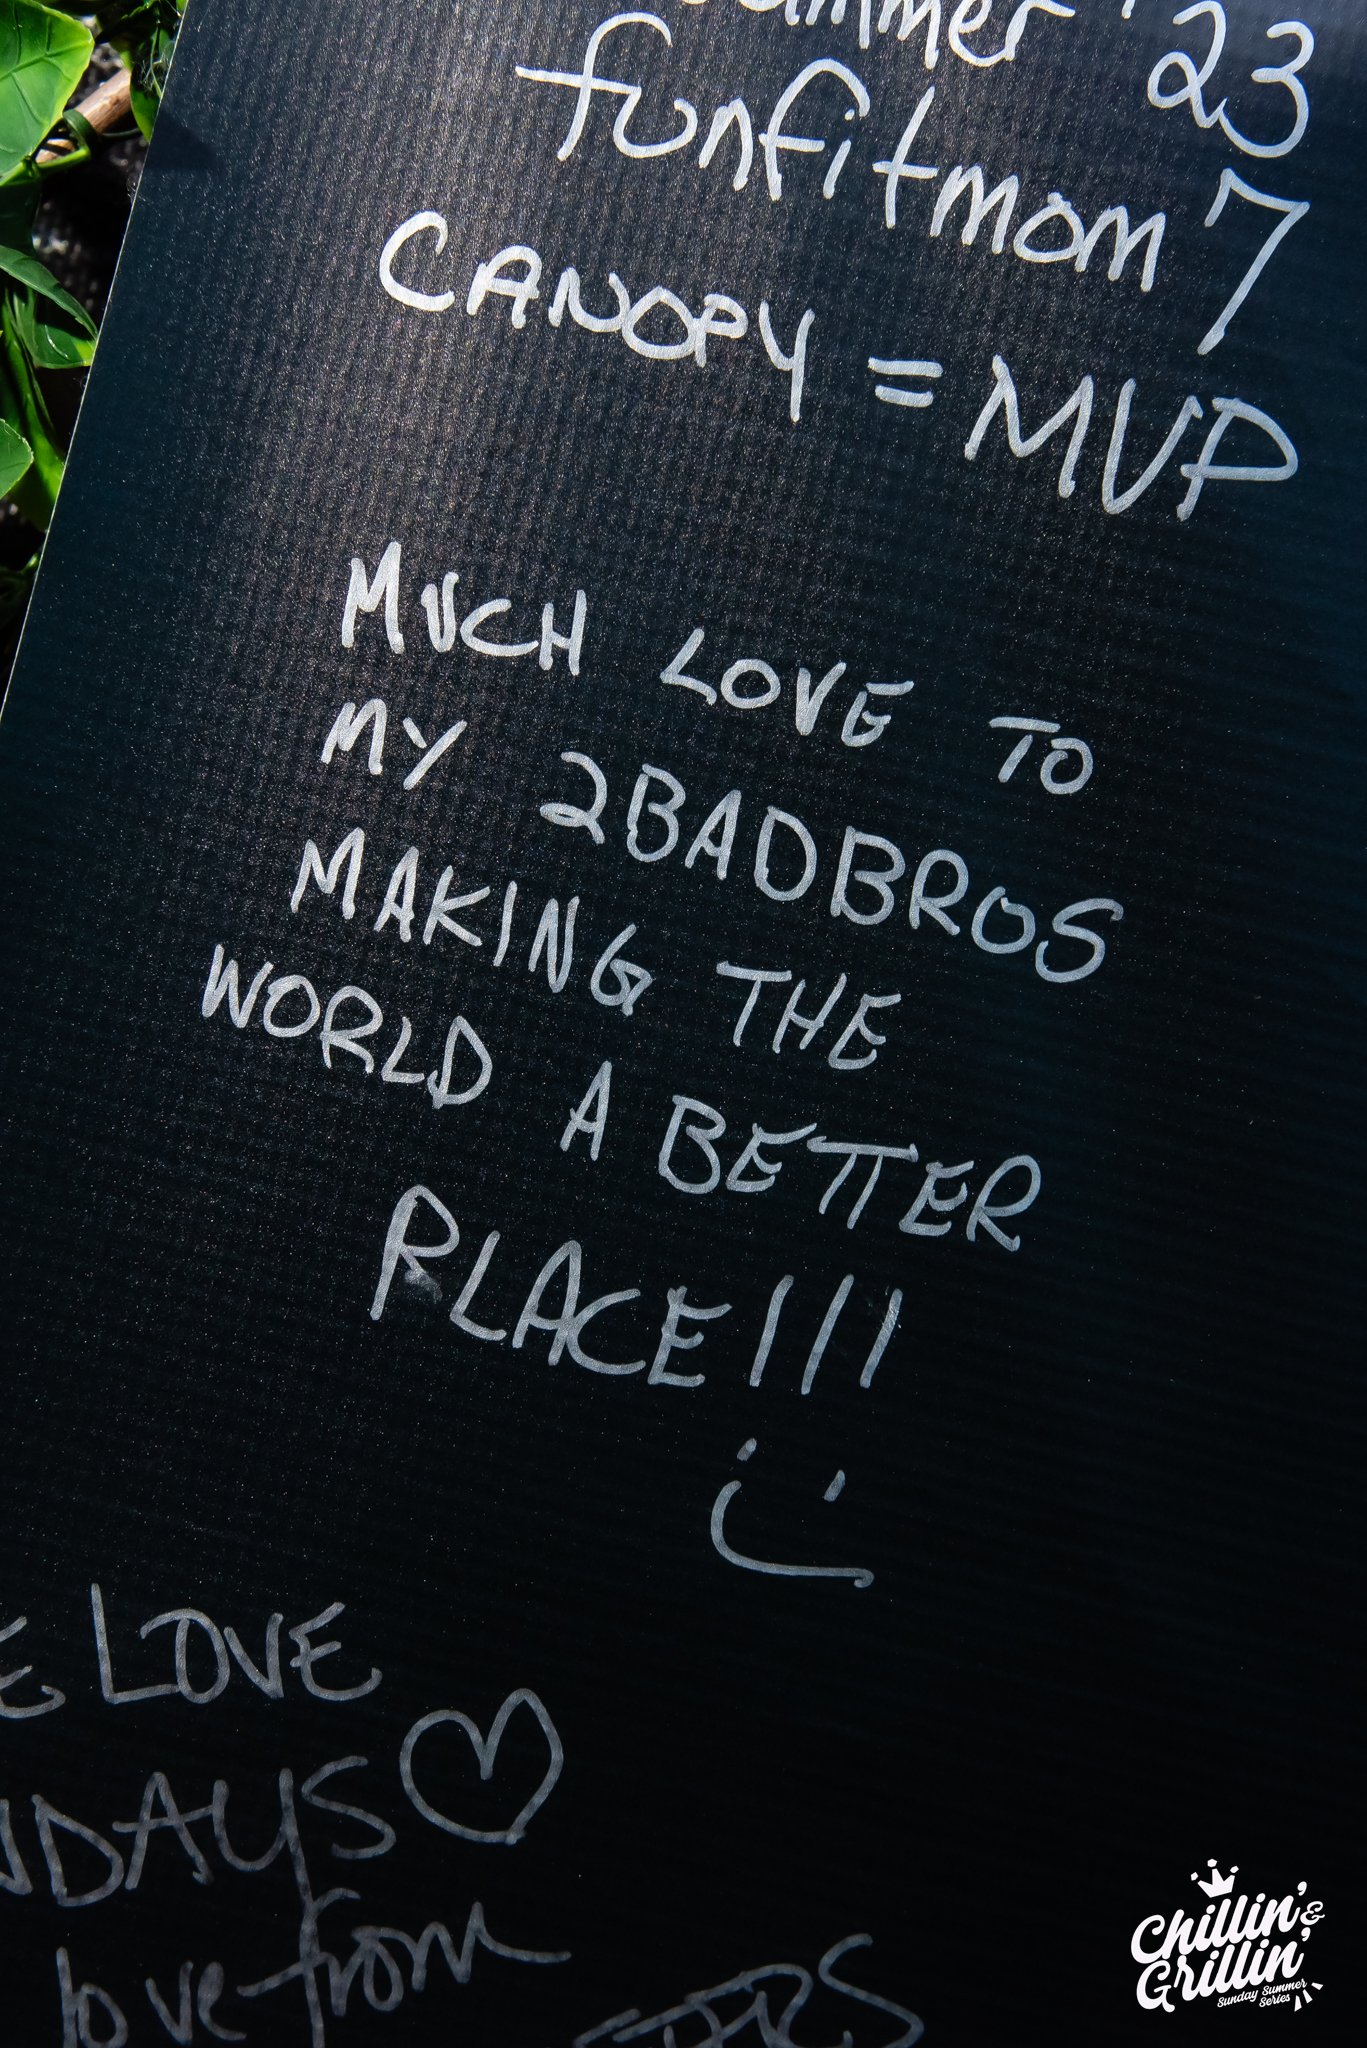 '23
funfitmom7
CANOPY = MVP
MUCH LOVE TO
MY 2BADBROS
MAKING THE
WORLD A BETTER
PLACE!!!
LOVE
love from
Chillin' &
Grillin'
Sunday Summer
Series